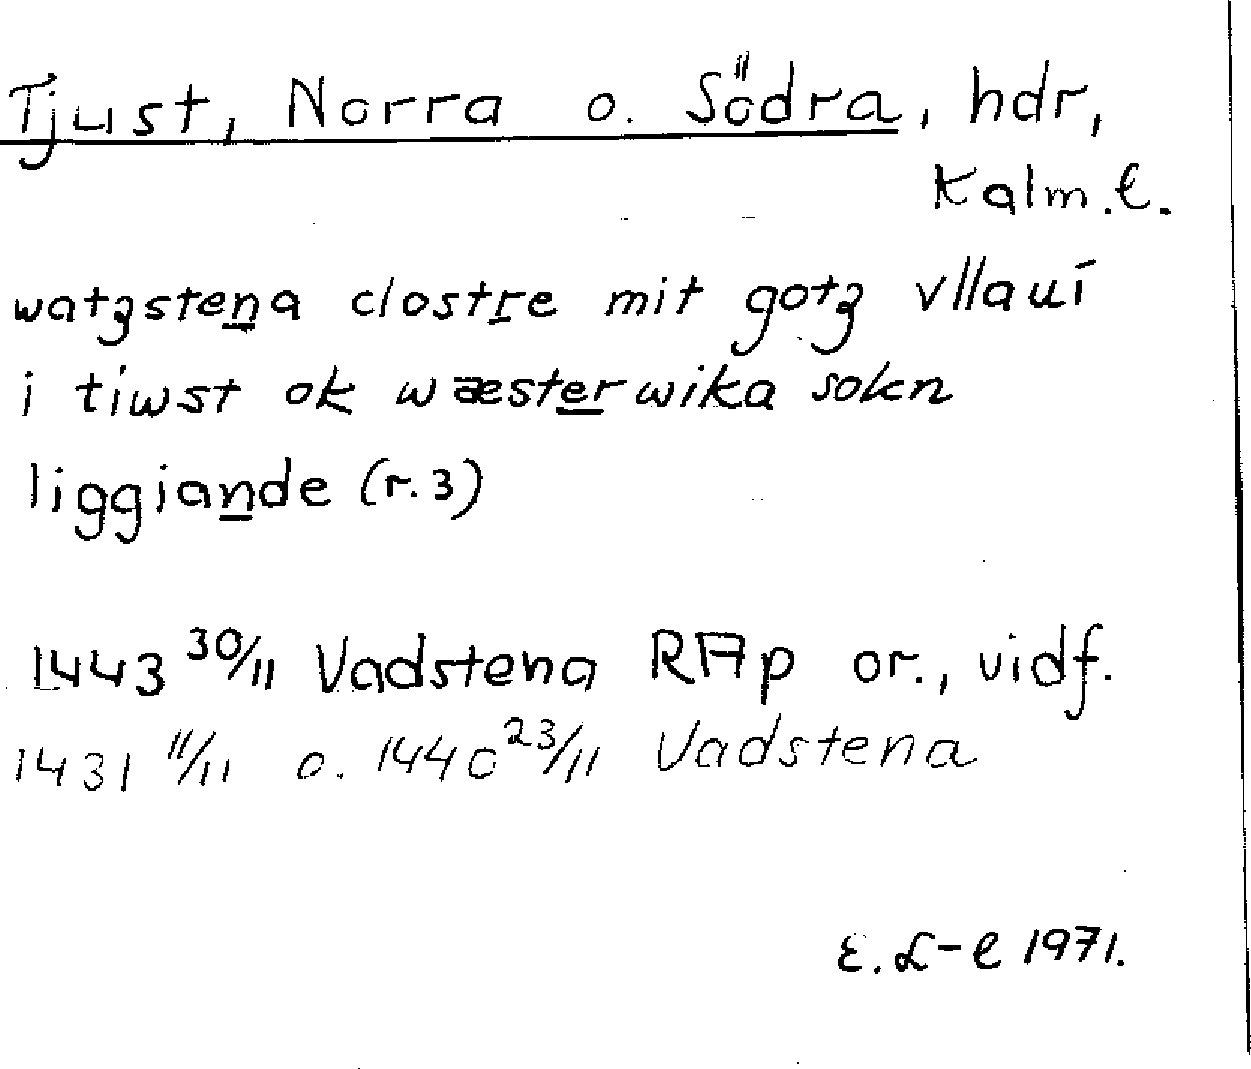 Tjust, Norra o. Södra, hdr,
Kalm.l.
watzstena clostre mit gotz vllaui
i tiwst ok wæsterwika sokn
liggiande (r.3)
1443 30/11 Vadstena RAp or., vidf.
1431 11/11 o. 1440 23/11 Vadstena
E. L-e 1971.